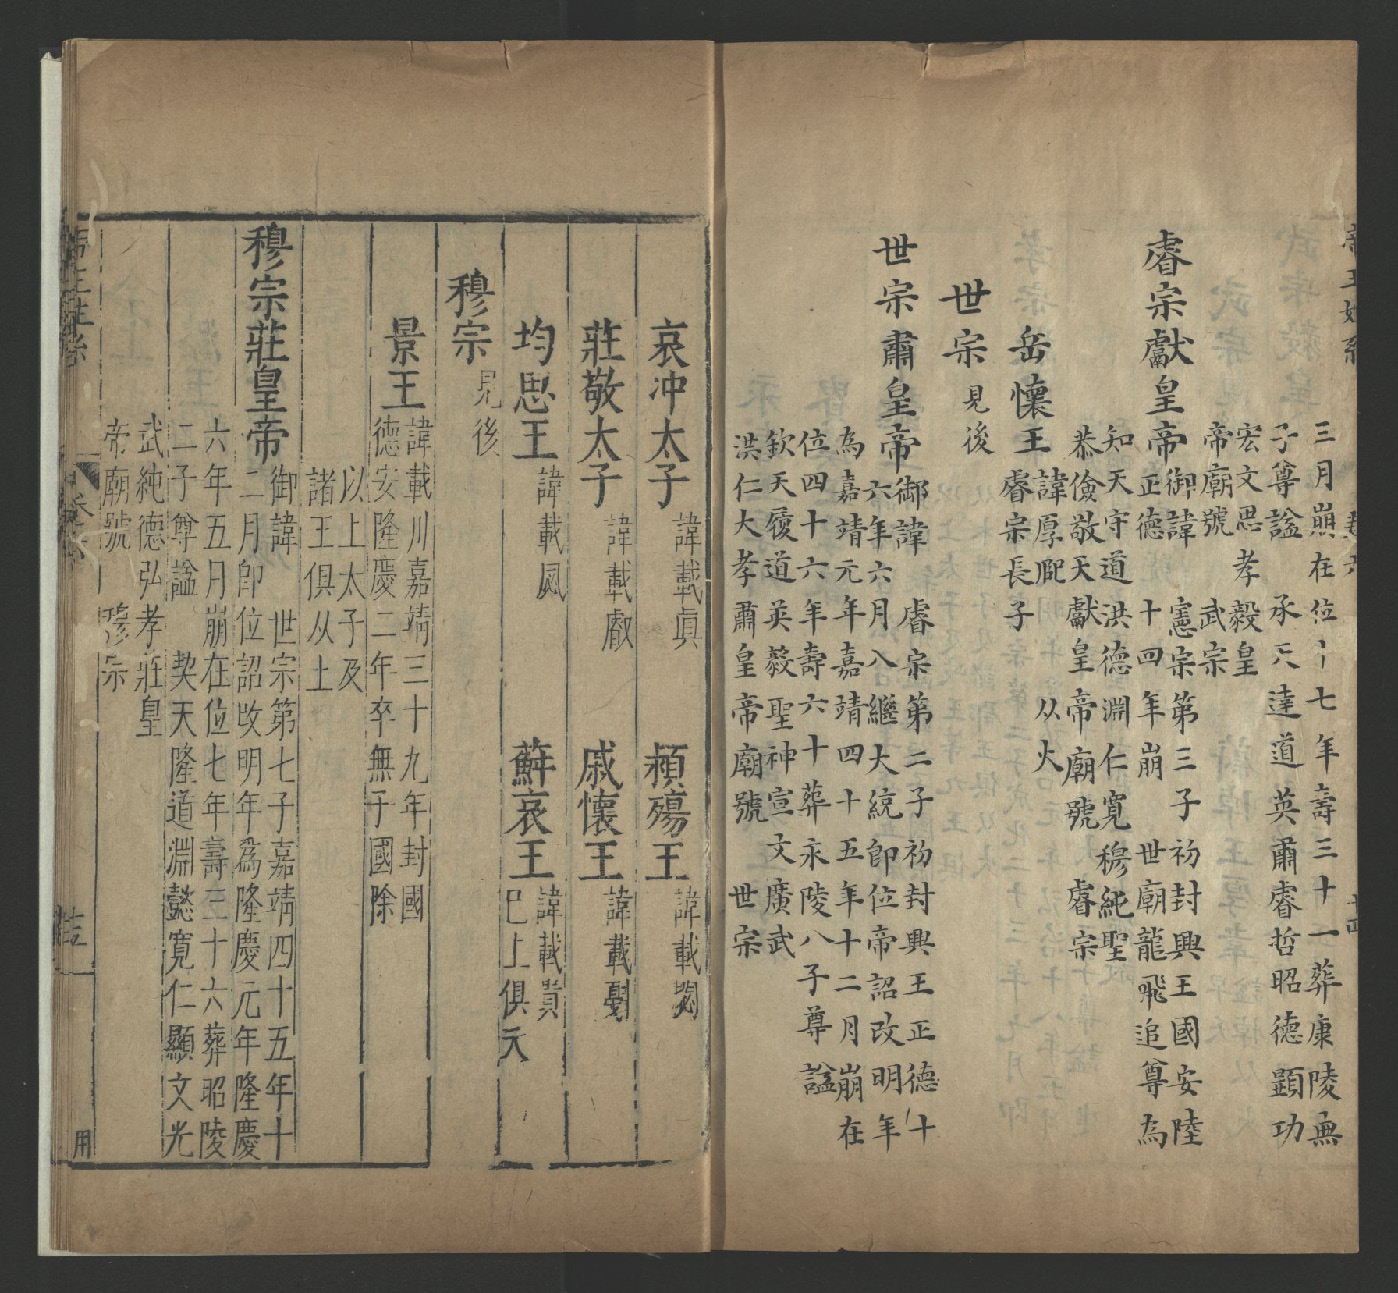 三月崩在位十七年壽三十一葬康陵無
子尊諡　承天達道英肅睿哲昭德顯功
宏文思孝毅皇
帝廟號　武宗
睿宗獻皇帝
御諱　憲宗第三子初封興王國安陸
正德十四年崩　世廟龍飛追尊為
知天守道洪德淵仁寬穆純聖
恭儉敬天獻皇帝廟號　睿宗
岳懷王
諱厚熙　从火
睿宗長子
世宗見後
世宗肅皇帝
御諱　睿宗第二子初封興王正德十
六年六月八繼大統卽位帝詔改明年
為嘉靖元年嘉靖四十五年十二月崩在
位四十六年壽六十葬永陵八子尊諡
欽天履道英毅聖神宣文廣武
洪仁大孝肅皇帝廟號　世宗
哀冲太子　諱載𡊮
頛殤王　諱載
莊敬太子　諱載
戚懷王　諱載
均思王　諱載
蘚哀王　諱載
已上俱天
穆宗見後
景王
諱載川嘉靖三十九年封國
德安隆慶二年卒無子國除
以上太子及
諸王俱从土
穆宗莊皇帝
御諱　世宗第七子嘉靖四十五年十
二月卽位詔改明年爲隆慶元年隆慶
六年五月崩在位七年壽三十六葬昭陵
二子尊諡　契天隆道淵懿寬仁顯文光
武純德弘孝莊皇
帝廟號　穆宗
用